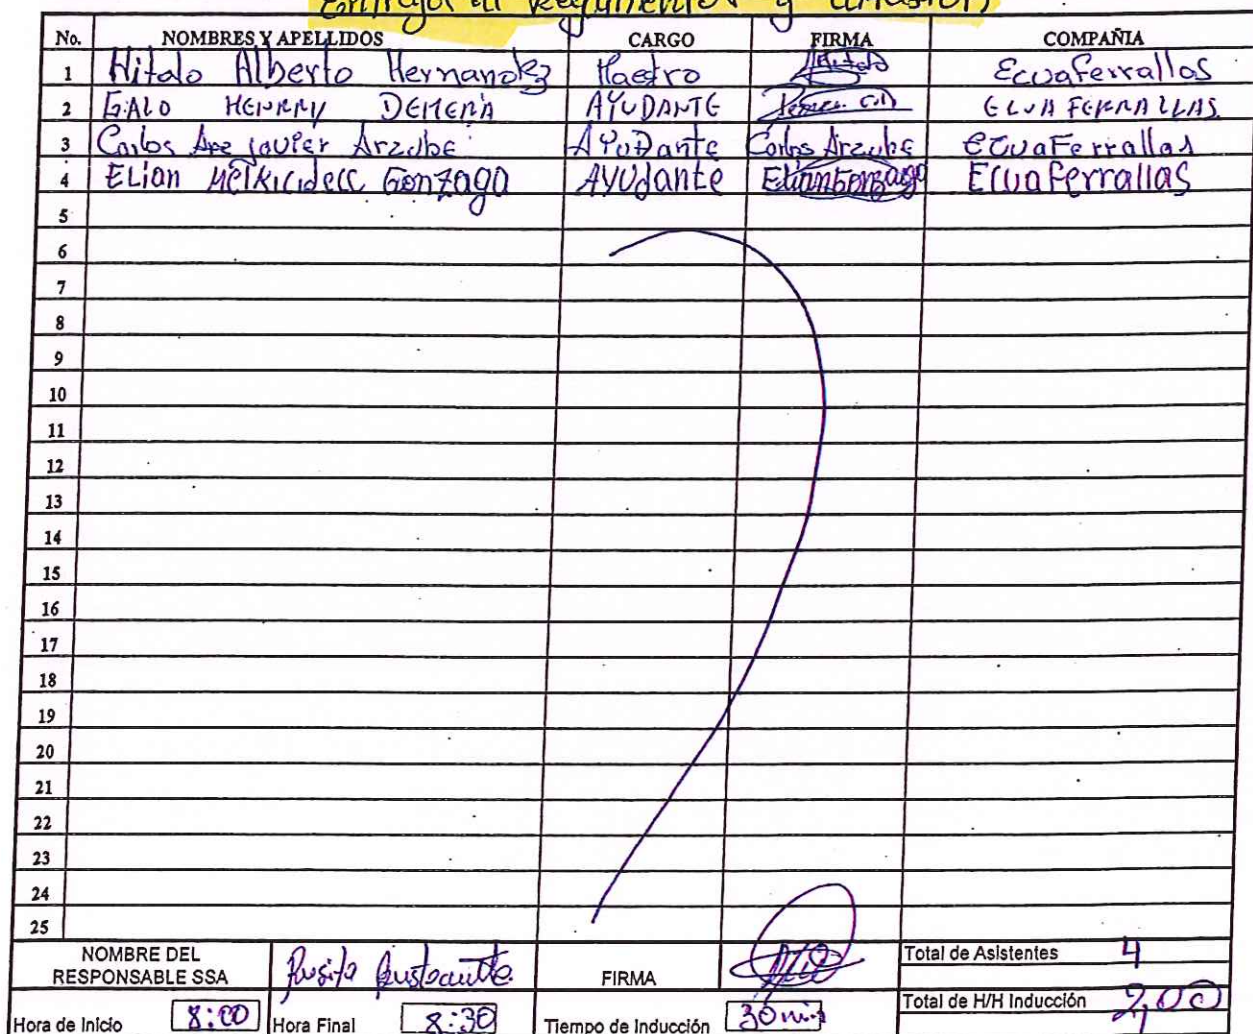 Entrega de Reglamentos y difusión,
No. NOMBRES Y APELLIDOS CARGO FIRMA COMPAÑIA
1 Hitalo Alberto Hernandez Maestro Ecuaferrallas
2 GALO HENRRY DEMERA AYUDANTE ECUAFERRALLAS
3 Carlos Javier Arzube AYuDante Carlos Arzube ECuaFerrallas
4 ELian Gonzago AYUdante ElianGonzago Ecuaferrallas
5
6
7
8
9
10
11
12
13
14
15
16
17
18
19
20
21
22
23
24
25
NOMBRE DEL RESPONSABLE SSA FIRMA Total de Asistentes 4
Total de H/H Inducción 2,00
Hora de Inicio 8:00 Hora Final 8:30 Tiempo de Inducción 30 min